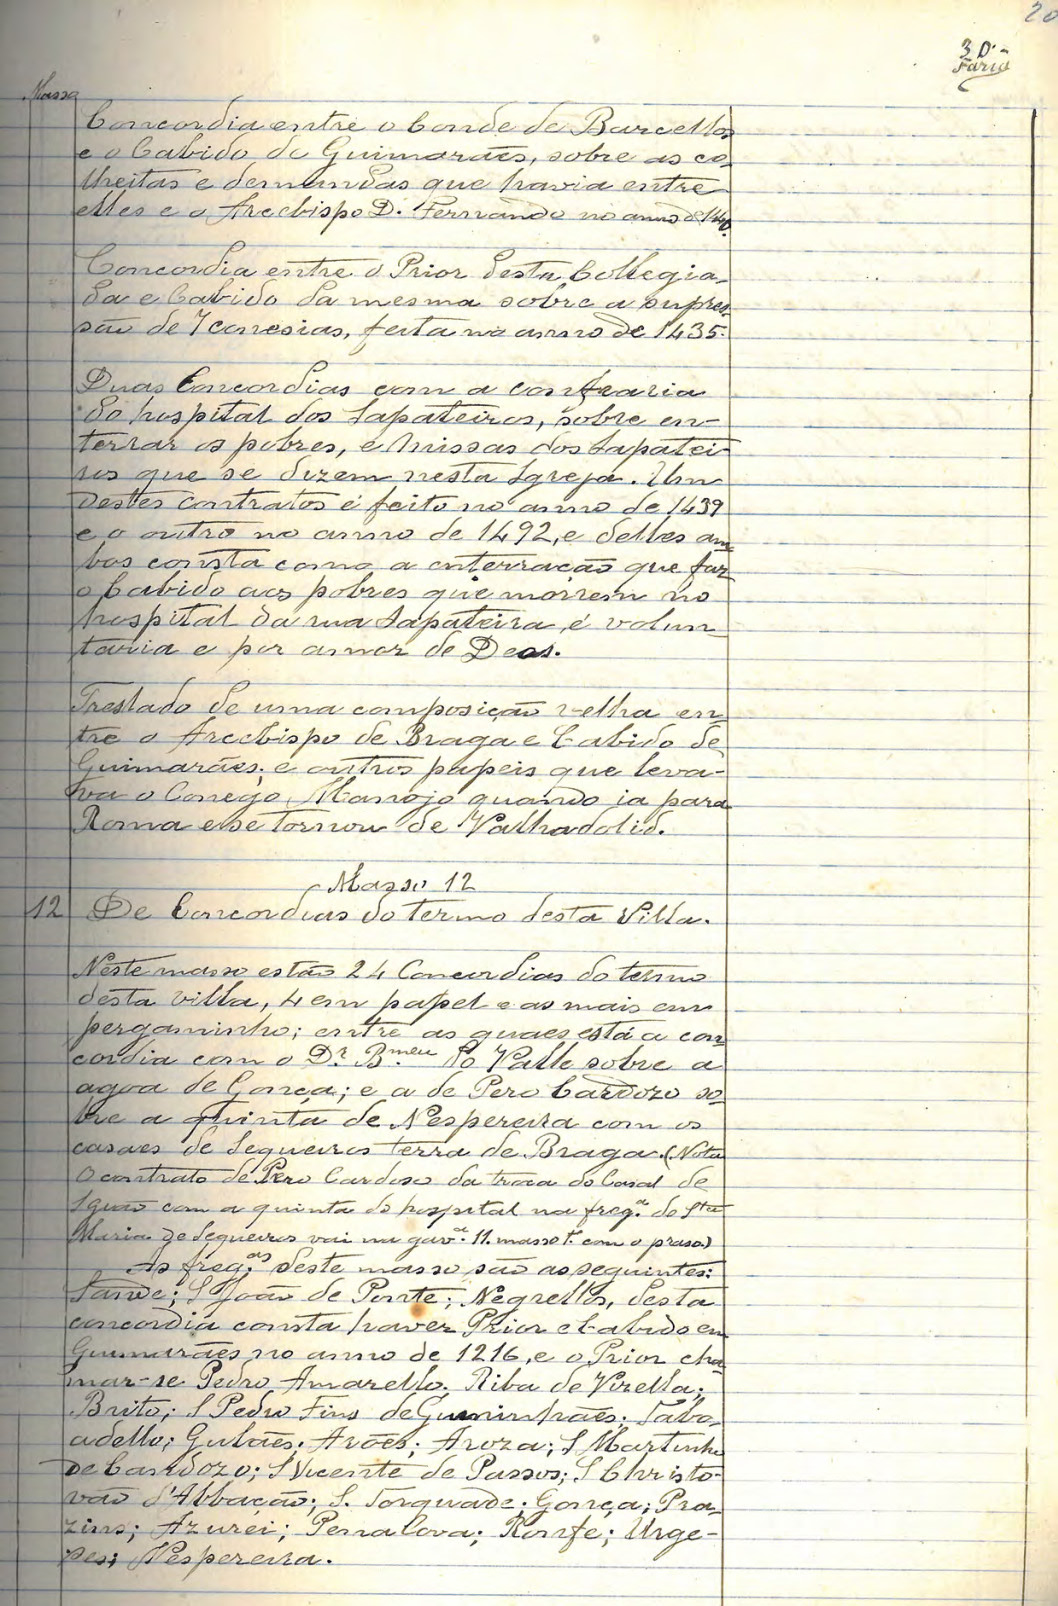 20
3 D.
Faria
Masso
Concordia entre o Conde de Barcellos
e o Cabido de Guimarães, sobre as co-
lheitas e demandas que havia entre
elles e o Arcebispo D. Fernando no anno de
Concordia entre o Prior desta Collegia-
da e Cabido da mesma sobre a supres-
são de 7 conesias, feita no anno de 1435.
Duas Concordias com a confraria
do hospital dos Sapateiros, sobre en-
terrar os pobres, e Missas dos Sapatei-
ros que se dizem nesta Igreja. Um
destes contratos é feito no anno de 1439
e o outro no anno de 1492, e delles am-
bos consta como a enterração que faz
o Cabido aos pobres que morrem no
hospital da rua Sapateira, é volun-
taria e por amor de Deos.
Treslado de uma composição velha en-
tre o Arcebispo de Braga e Cabido de
Guimarães, e outros papeis que leva-
va o Conego Manojo quando ia para
Roma e se tornou de Valhadolid.
Masso 12
12 De Concordias do termo desta Villa.
Neste masso estão 24 Concordias do termo
desta villa, 4 em papel e as mais em
pergaminho; entre as quaes está a con-
cordia com o Dr. Bmeu do Valle sobre a
agoa de Gonça; e a de Pero Cardozo so-
bre a quinta de Nespereira com os
casaes de Sequeiros terra de Braga. (Nota
O contrato de Pero Cardoso da troca do Casal de
com a quinta do hospital na freg.a de Sta
Maria de Sequeiros vai na gav.a 11. masso 1.º com o praso.)
As freg.as deste masso são as seguintes:
Sande; S João de Ponte; Negrellos, desta
concordia consta haver Prior e Cabido em
Guimarães no anno de 1216, e o Prior cha-
mar-se Pedro Amarello. Riba de Vizella;
Brito; S Pedro Fins de Gominhães; Tabo-
adello; Gulães; Arões; Aroza; S Martinho
de Candozo; S Vicente de Passos; S Christo-
vão d'Abbação; S. Torquade; Gonça; Pra-
zins; Azurei; Penalova; Ronfe; Urge-
ses; Nespereira.